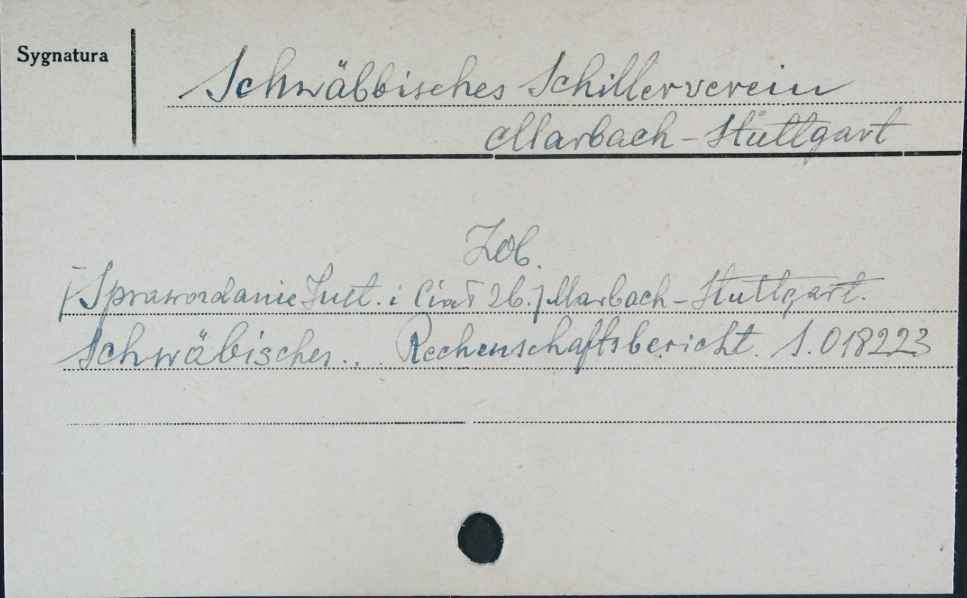 Sygnatura
Schwäbbisches Schillerverein
Marbach-Stuttgart
Zob.
[Sprawozdanie Inst. i Ciał zb.] Marbach-Stuttgart.
Schwäbischer... Rechenschaftsbericht. S.018223